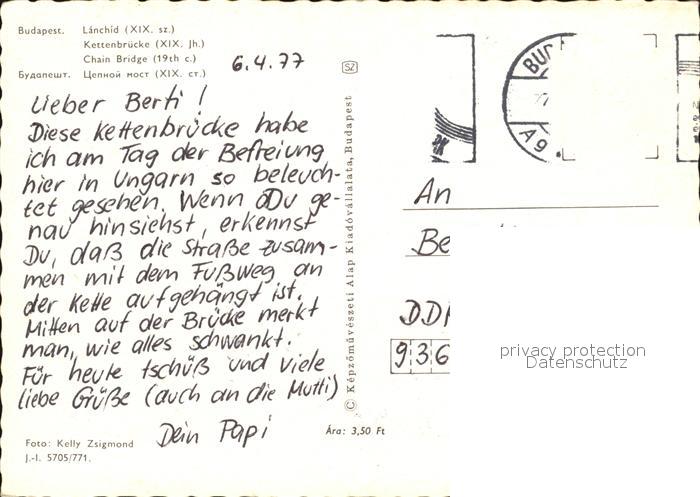 Budapest. Lánchíd (XIX. sz.)
Kettenbrücke (XIX. Jh.)
Chain Bridge (19th c.)
Будапешт. Цепной мост (XIX. ст.)
6.4.77
SZ
Lieber Berti!
Diese Kettenbrücke habe
ich am Tag der Befreiung
hier in Ungarn so beleuch-
tet gesehen. Wenn Du ge-
nau hinsiehst, erkennst
Du, daß die Straße zusam-
men mit dem Fußweg an
der Kette aufgehängt ist.
Mitten auf der Brücke merkt
man, wie alles schwankt.
Für heute tschüß und viele
liebe Grüße (auch an die Mutti)
Dein Papi
Foto: Kelly Zsigmond
J.-I. 5705/771.
Ára: 3,50 Ft
© Képzőművészeti Alap Kiadóvállalata, Budapest
BUD
A9
An
Be
DD
936
privacy protection
Datenschutz